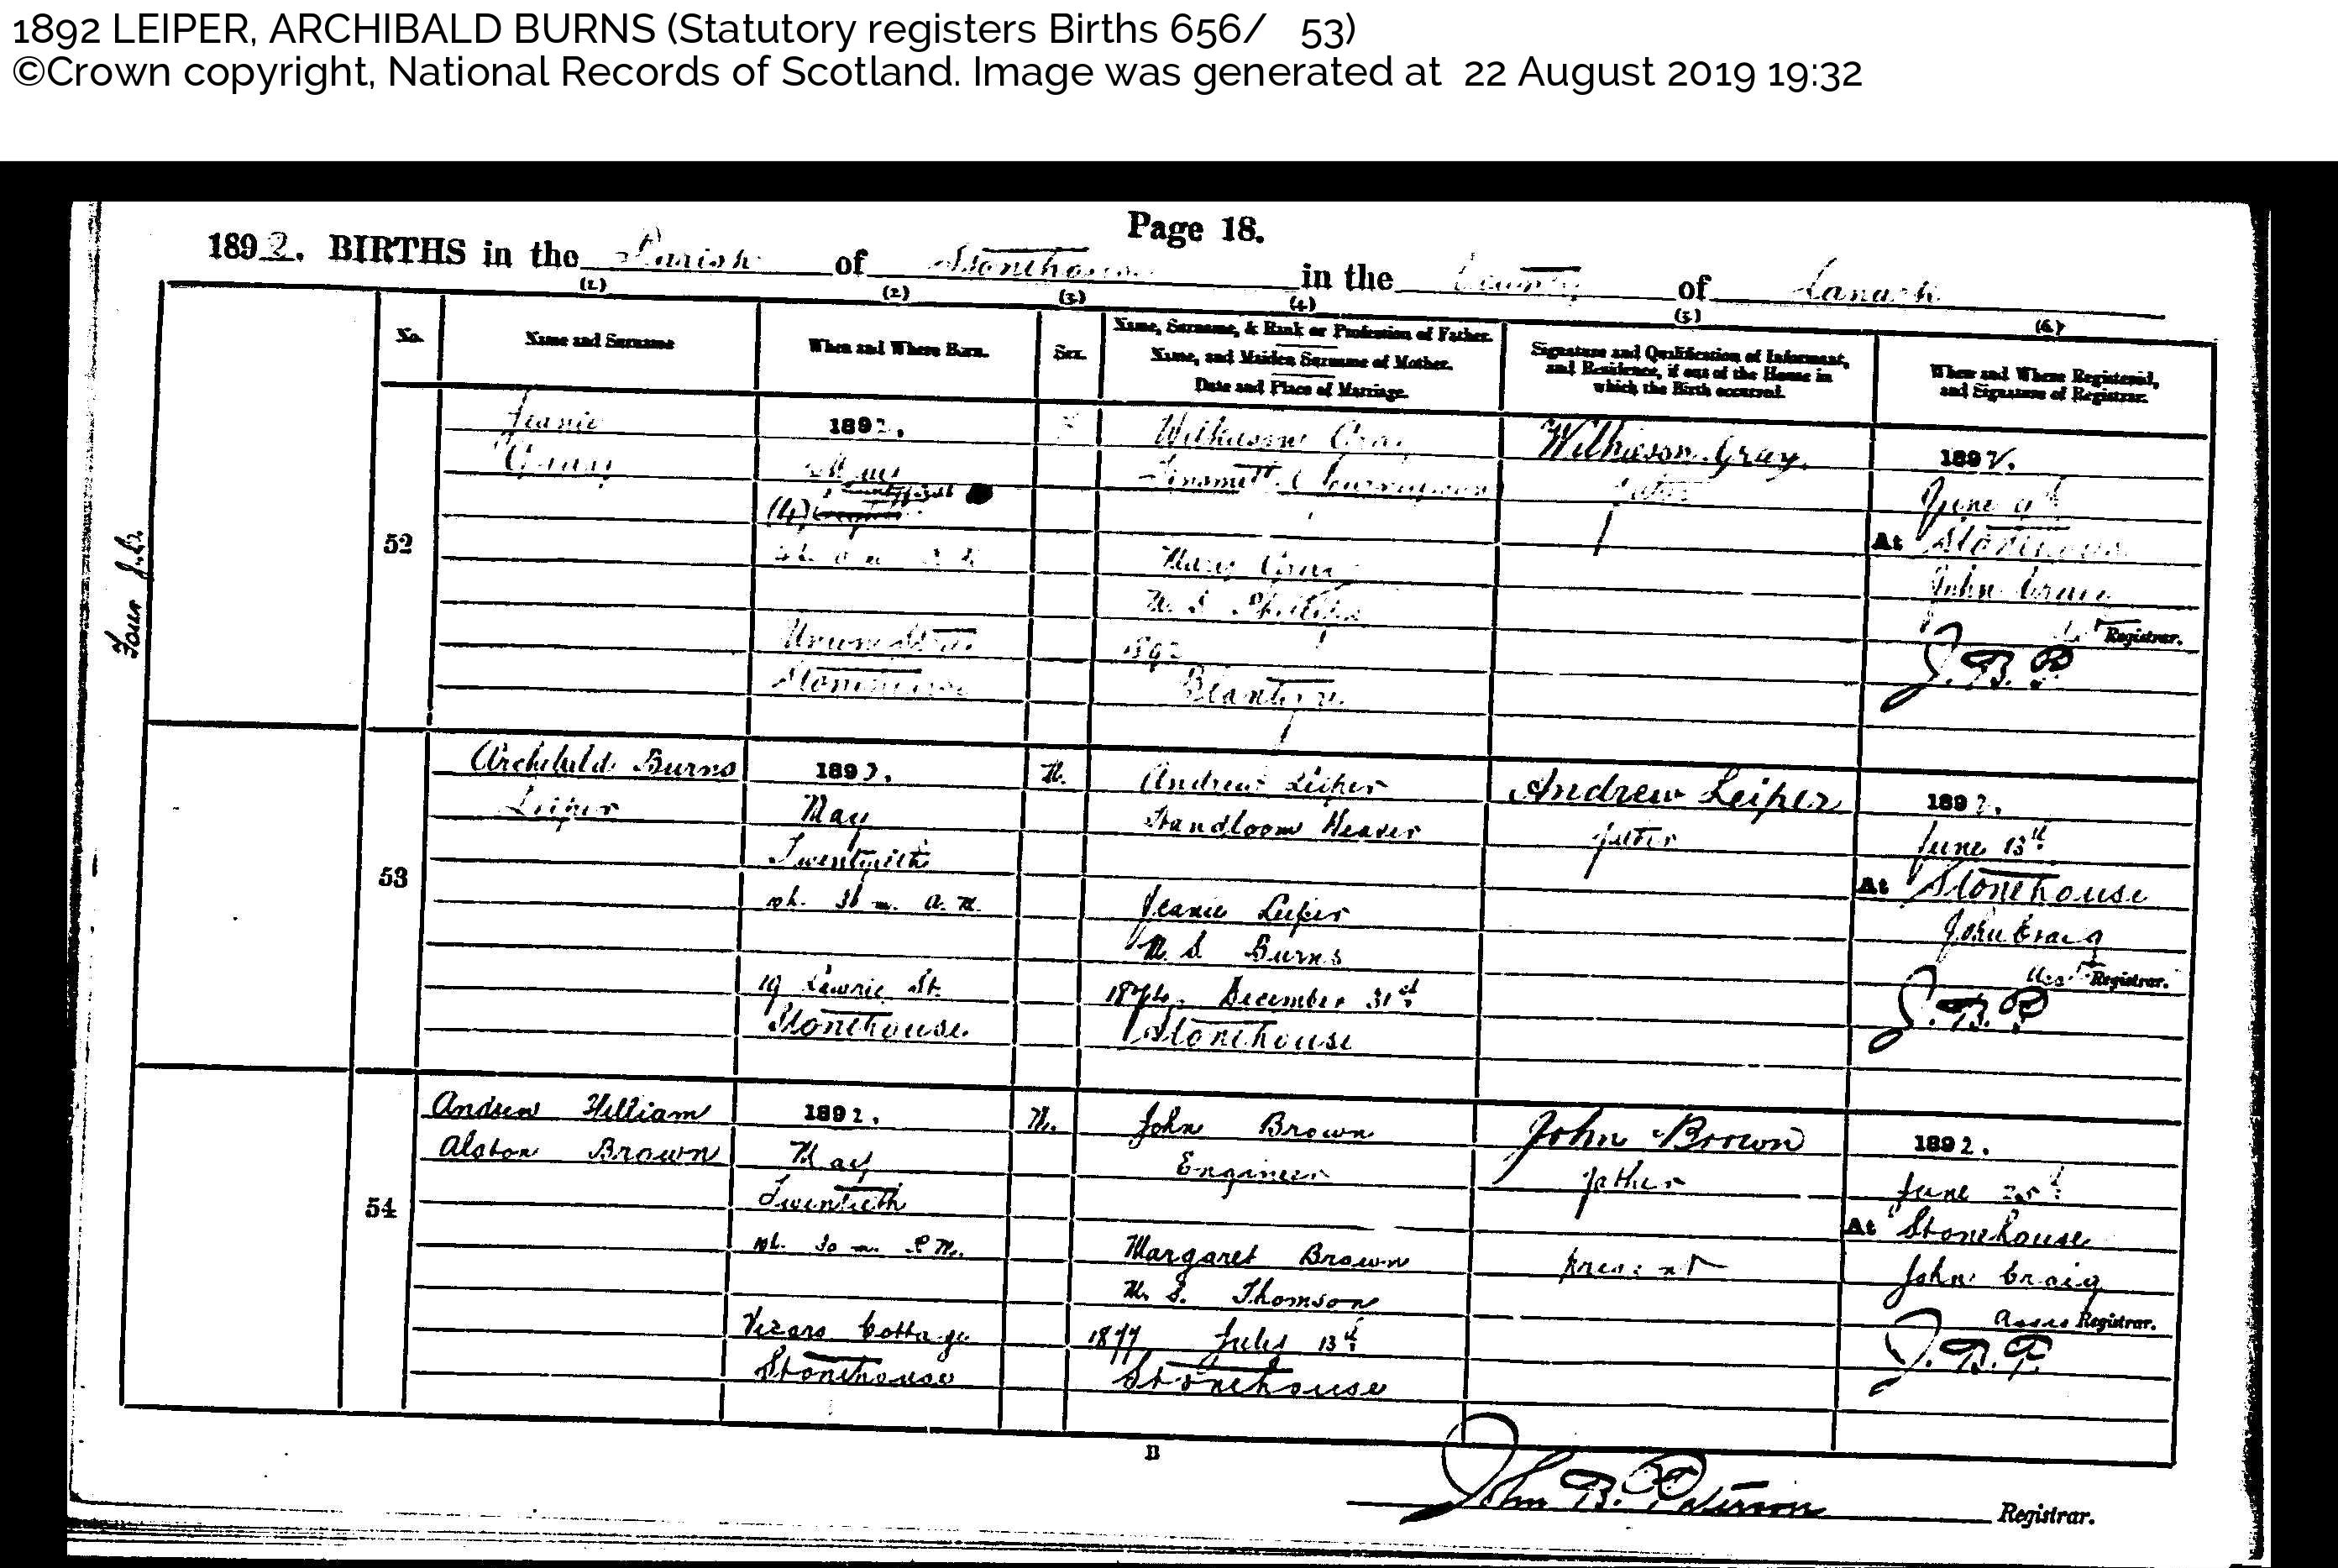 1892 LEIPER, ARCHIBALD BURNS (Statutory registers Births 656/ 53)
©Crown copyright, National Records of Scotland. Image was generated at 22 August 2019 19:32
Page 18.
1892. BIRTHS in the Parish of Stonehouse in the County of Lanark
(1.) (2) (3) (4) (5) (6)
No.
Name and Surname
When and Where Born.
Sex.
Name, Surname, & Rank or Profession of Father.
Name, and Maiden Surname of Mother.
Date and Place of Marriage.
Signature and Qualification of Informant,
and Residence, if out of the House in
which the Birth occurred.
When and Where Registered,
and Signature of Registrar.
Four
52
Jeanie
Gray
1892.
May
Union Street
Stonehouse
Wilkieson Gray
Mary Gray
M. S. Phillips
1892
Blantyre
Wilkieson Gray.
father
1892.
June
At Stonehouse
John Craig
Registrar.
J. B. P.
53
Archibald Burns
Leiper
1892.
May
h. m. A. M.
19 Lawrie St.
Stonehouse
M.
Andrew Leiper
Handloom Weaver
Jeanie Leiper
M. S. Burns
December 31st
Stonehouse
Andrew Leiper
father
1892.
June 13th
At Stonehouse
John Craig
Asst Registrar.
J. B. P.
54
Andrew William
Alston Brown
1892.
May
Twentieth
h. 30 m. P. M.
Cottage
Stonehouse
M.
John Brown
Engineer
Margaret Brown
M. S. Thomson
1877 July 13th
Stonehouse
John Brown
father
present
1892.
June 25th
At Stonehouse
John Craig
Registrar.
J. B. P.
B
John B. Paterson Registrar.